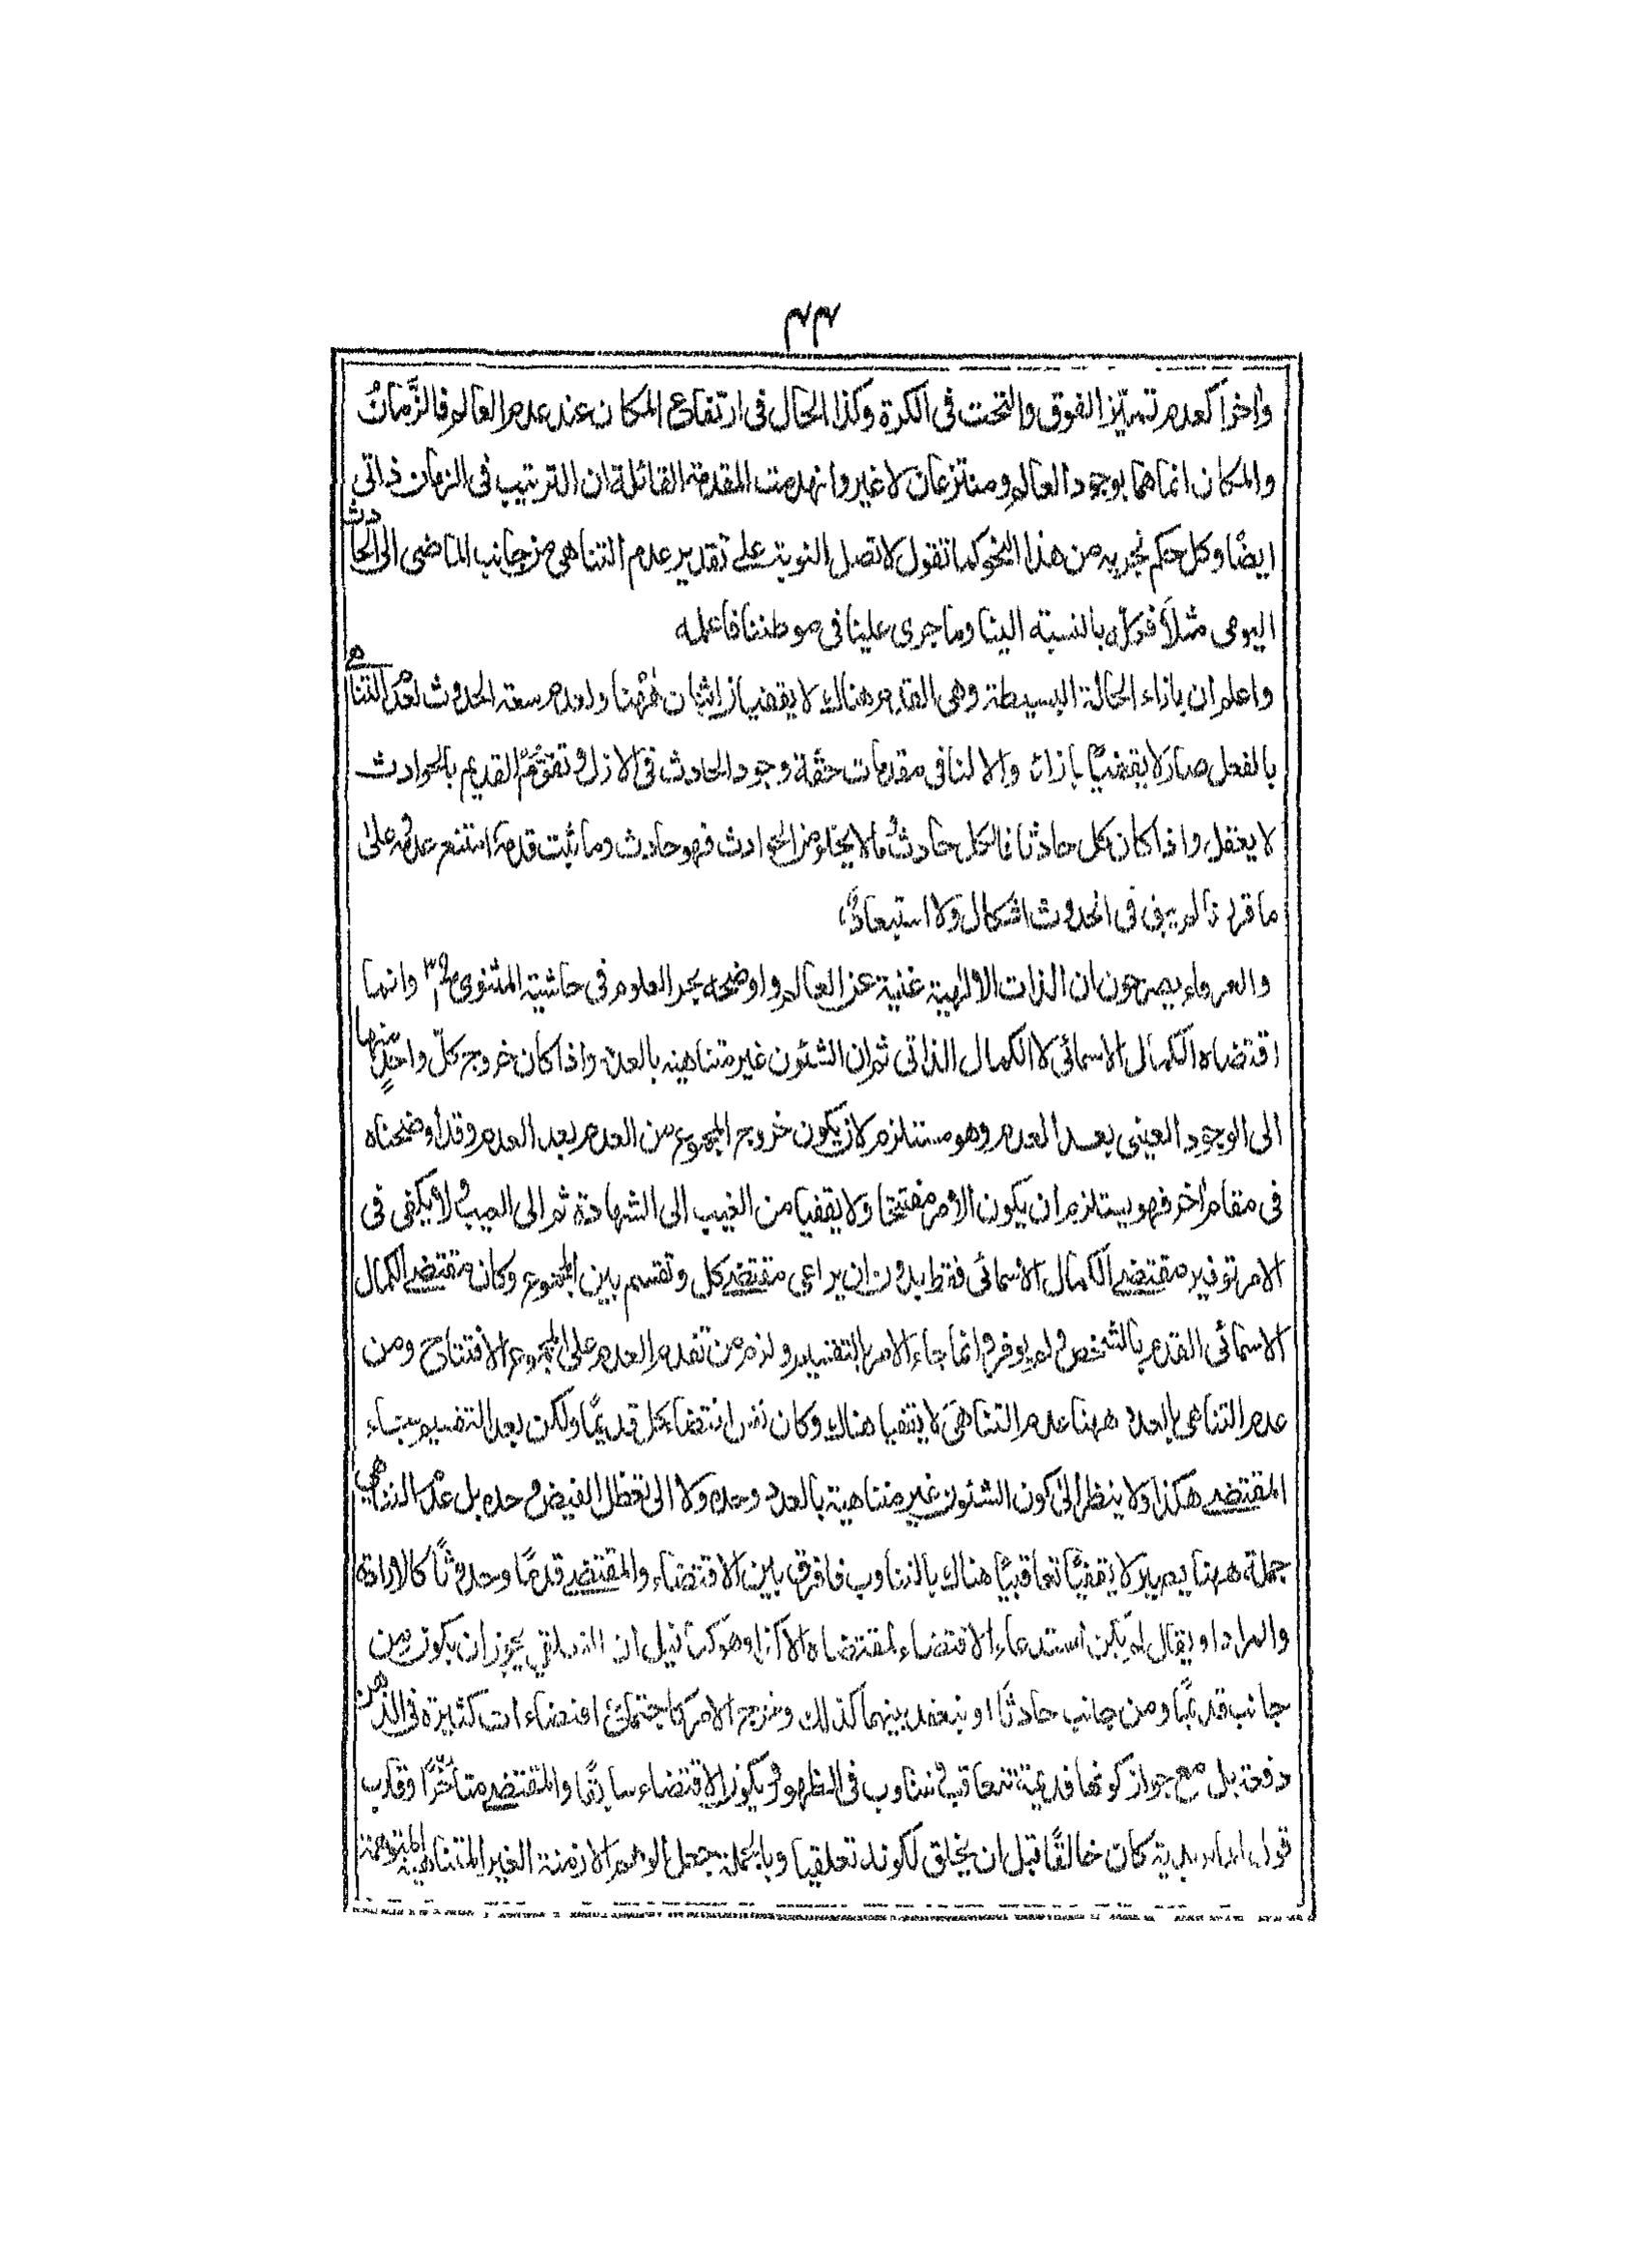 ٣٣
واخرا كعدم تميّز الفوق والتحت فى الكرة وكذا الحال فى ارتفاع المكان عند عدم العالم فالزّمانُ
والمكان انما هما بوجود العالم ومنتزعان لا غير وانهدمت المقدمة القائلة ان الترتيب فى الزمان ذاتى
ايضًا وكل حكم نجريه من هذا النحو كما تقول لا تصل النوبة على تقدير عدم التناهى من جانب الماضى الى الحادث
اليومى مثلاً فهو كله بالنسبة الينا وما جرى علينا فى موطننا فاعلمه
واعلم ان بازاء الحالة البسيطة وهى القدم هناك لا يقفيا زاثنان فههنا ولعدم سعة الحدوث لعدم التناهى
بالفعل صار لا يقفيًا بازائه والا لنا فى مقدمات حقة وجود الحادث فى الازل وتقوّم القديم بالحوادث
لا يعقل واذا كان كل حادثا فالكل حادثٌ ما لا يخلو من الحوادث فهو حادث وما ثبت قدمه امتنع عدمه على
ما قرر فلم يبق فى الحدوث اشكال ولا استبعادٌ،
والعرفاء يصرحون ان الذات الالهية غنية عن العالم واوضحه بحر العلوم فى حاشية المثنوى وانما
اقتضاه الكمال الاسمائى لا الكمال الذاتى ثم ان الشئون غير متناهيه بالعدد واذا كان خروج كلّ واحدٍ منها
الى الوجود العينى بعد العدم وهو مستلزم لان يكون خروج المجموع من العدم بعد العدم وقد اوضحناه
فى مقام اخر فهو يستلزم ان يكون الأمر مفتتحا ولا يقفيا من الغيب الى الشهادة ثم الى الغيب ولا يكفى فى
الامر توفير مقتضى الكمال الاسمائى فقط بدون ان يراعى مقتضى كل وتقسم بين المجموع وكان مقتضى الكمال
الاسمائى القدم بالشخص ولم يوفر وانما جاء الامر بالتقسيم ولزم من تقدم العدم على المجموع الافتتاح ومن
عدم التناهى بالعدد ههنا عدم التناهى لا يقفيا هناك وكان نفس اقتضاء كل قديمًا ولكن بعد التقسيم جاء
المقتضى هكذا ولا ينظر الى كون الشئون غير متناهية بالعدد وحده ولا الى تعطل الفيض وحده بل عدم التناهى
جملة ههنا يصير لا يقفيًا تعاقبيًا هناك بالتناوب فافرق بين الاقتضاء والمقتضى قدمًا وحدوثًا كالارادة
والمراد او يقال لم يكن استدعاء الاقتضاء لمقتضاه الا كذا وهو كما قيل ان التعلق يجوز ان يكون من
جانب قديمًا ومن جانب حادثًا او ينعقد بينهما كذلك وخرج الامر كاجتماع اقتضاءات كثيرة فى الذهن
دفعة بل مع جواز كونها قديمة تتعاقب وتتناوب فى الظهور ويكون الاقتضاء سابقًا والمقتضى متاخّرًا وقارب
كان خالقًا قبل ان يخلق لكونه تعلقيا وبالجملة جعل الوهم الازمنة الغير المتناهية المتوهمة